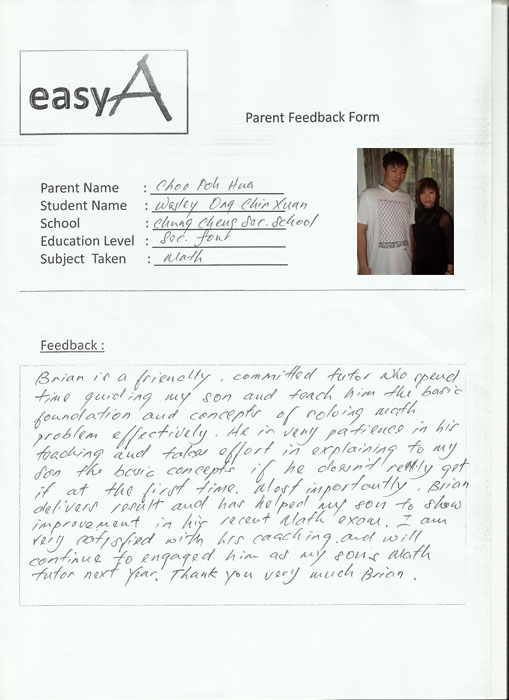 easyA
Parent Feedback Form
Parent Name : Choo Poh Hua
Student Name : Wesley Ong Chin Xuan
School : Chung Cheng Sec. School
Education Level : Sec. four
Subject Taken : Math
Feedback :
Brian is a friendly, committed tutor who spend
time guiding my son and teach him the basic
foundation and concepts of solving math
problem effectively. He is very patience in his
teaching and takes effort in explaining to my
son the basic concepts if he doesn't really get
it at the first time. Most importantly, Brian
delivers result and has helped my son to show
improvement in his recent Math exam. I am
very satisfied with his coaching and will
continue to engaged him as my son's Math
tutor next year. Thank you very much Brian.